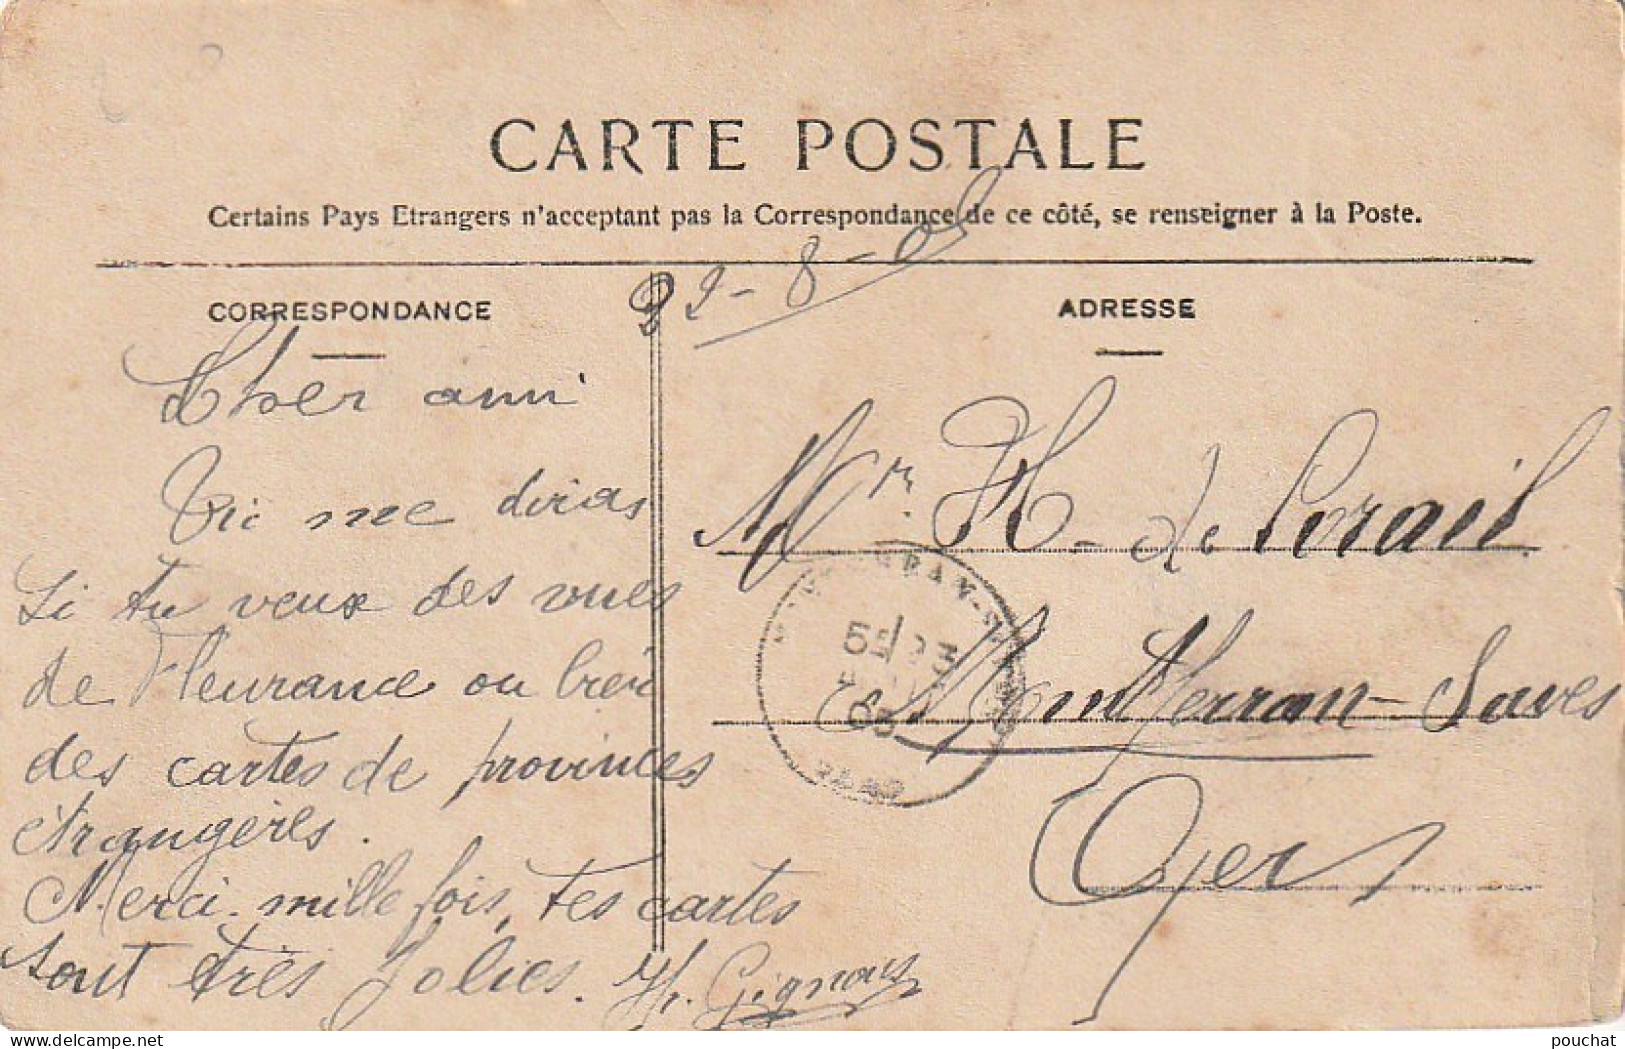 CARTE POSTALE
Certains Pays Etrangers n'acceptant pas la Correspondance de ce côté, se renseigner à la Poste.
22-8-05
CORRESPONDANCE
Cher ami
Tu me diras
si tu veux des vues
de Fleurance ou bien
des cartes de provinces
étrangères.
Merci mille fois, tes cartes
sont très jolies. H. Gignoux
ADRESSE
Mr H. de Lorail
Montferran-Saves
Gers
pouchat